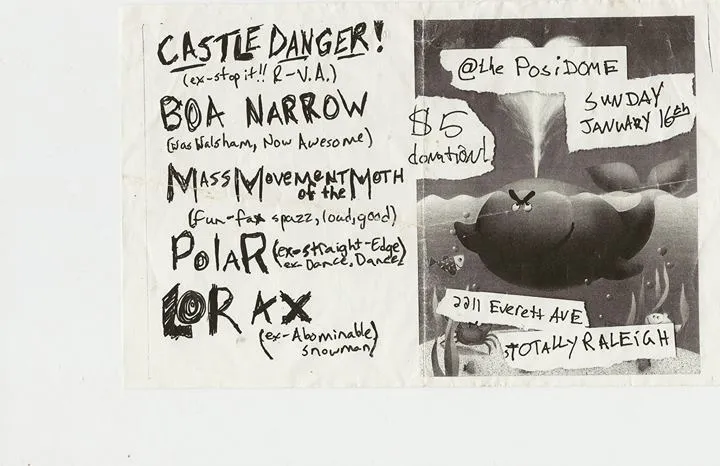 CASTLE DANGER!
(ex-stop it!! R-V.A.)
BOA NARROW
(was Walsham, Now Awesome)
MASS MOVEMENT of the MOTH
(fun-fax spazz, loud, good)
POLAR (ex-straight-Edge)
ex-Dance, Dance)
LORAX
(ex-Abominable
snowman)
@the POSiDOME
SUNDAY
JANUARY 16th
$5
donation!
2211 Everett AVE
TOTALLY RALEiGH